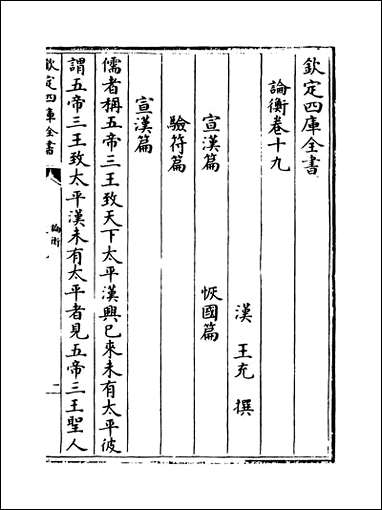 欽定四庫全書
論衡卷十九
漢 王充 撰
宣漢篇 恢國篇
驗符篇
宣漢篇
儒者稱五帝三王致天下太平漢興已來未有太平彼
謂五帝三王致太平漢未有太平者見五帝三王聖人
欽定四庫全書
論衡